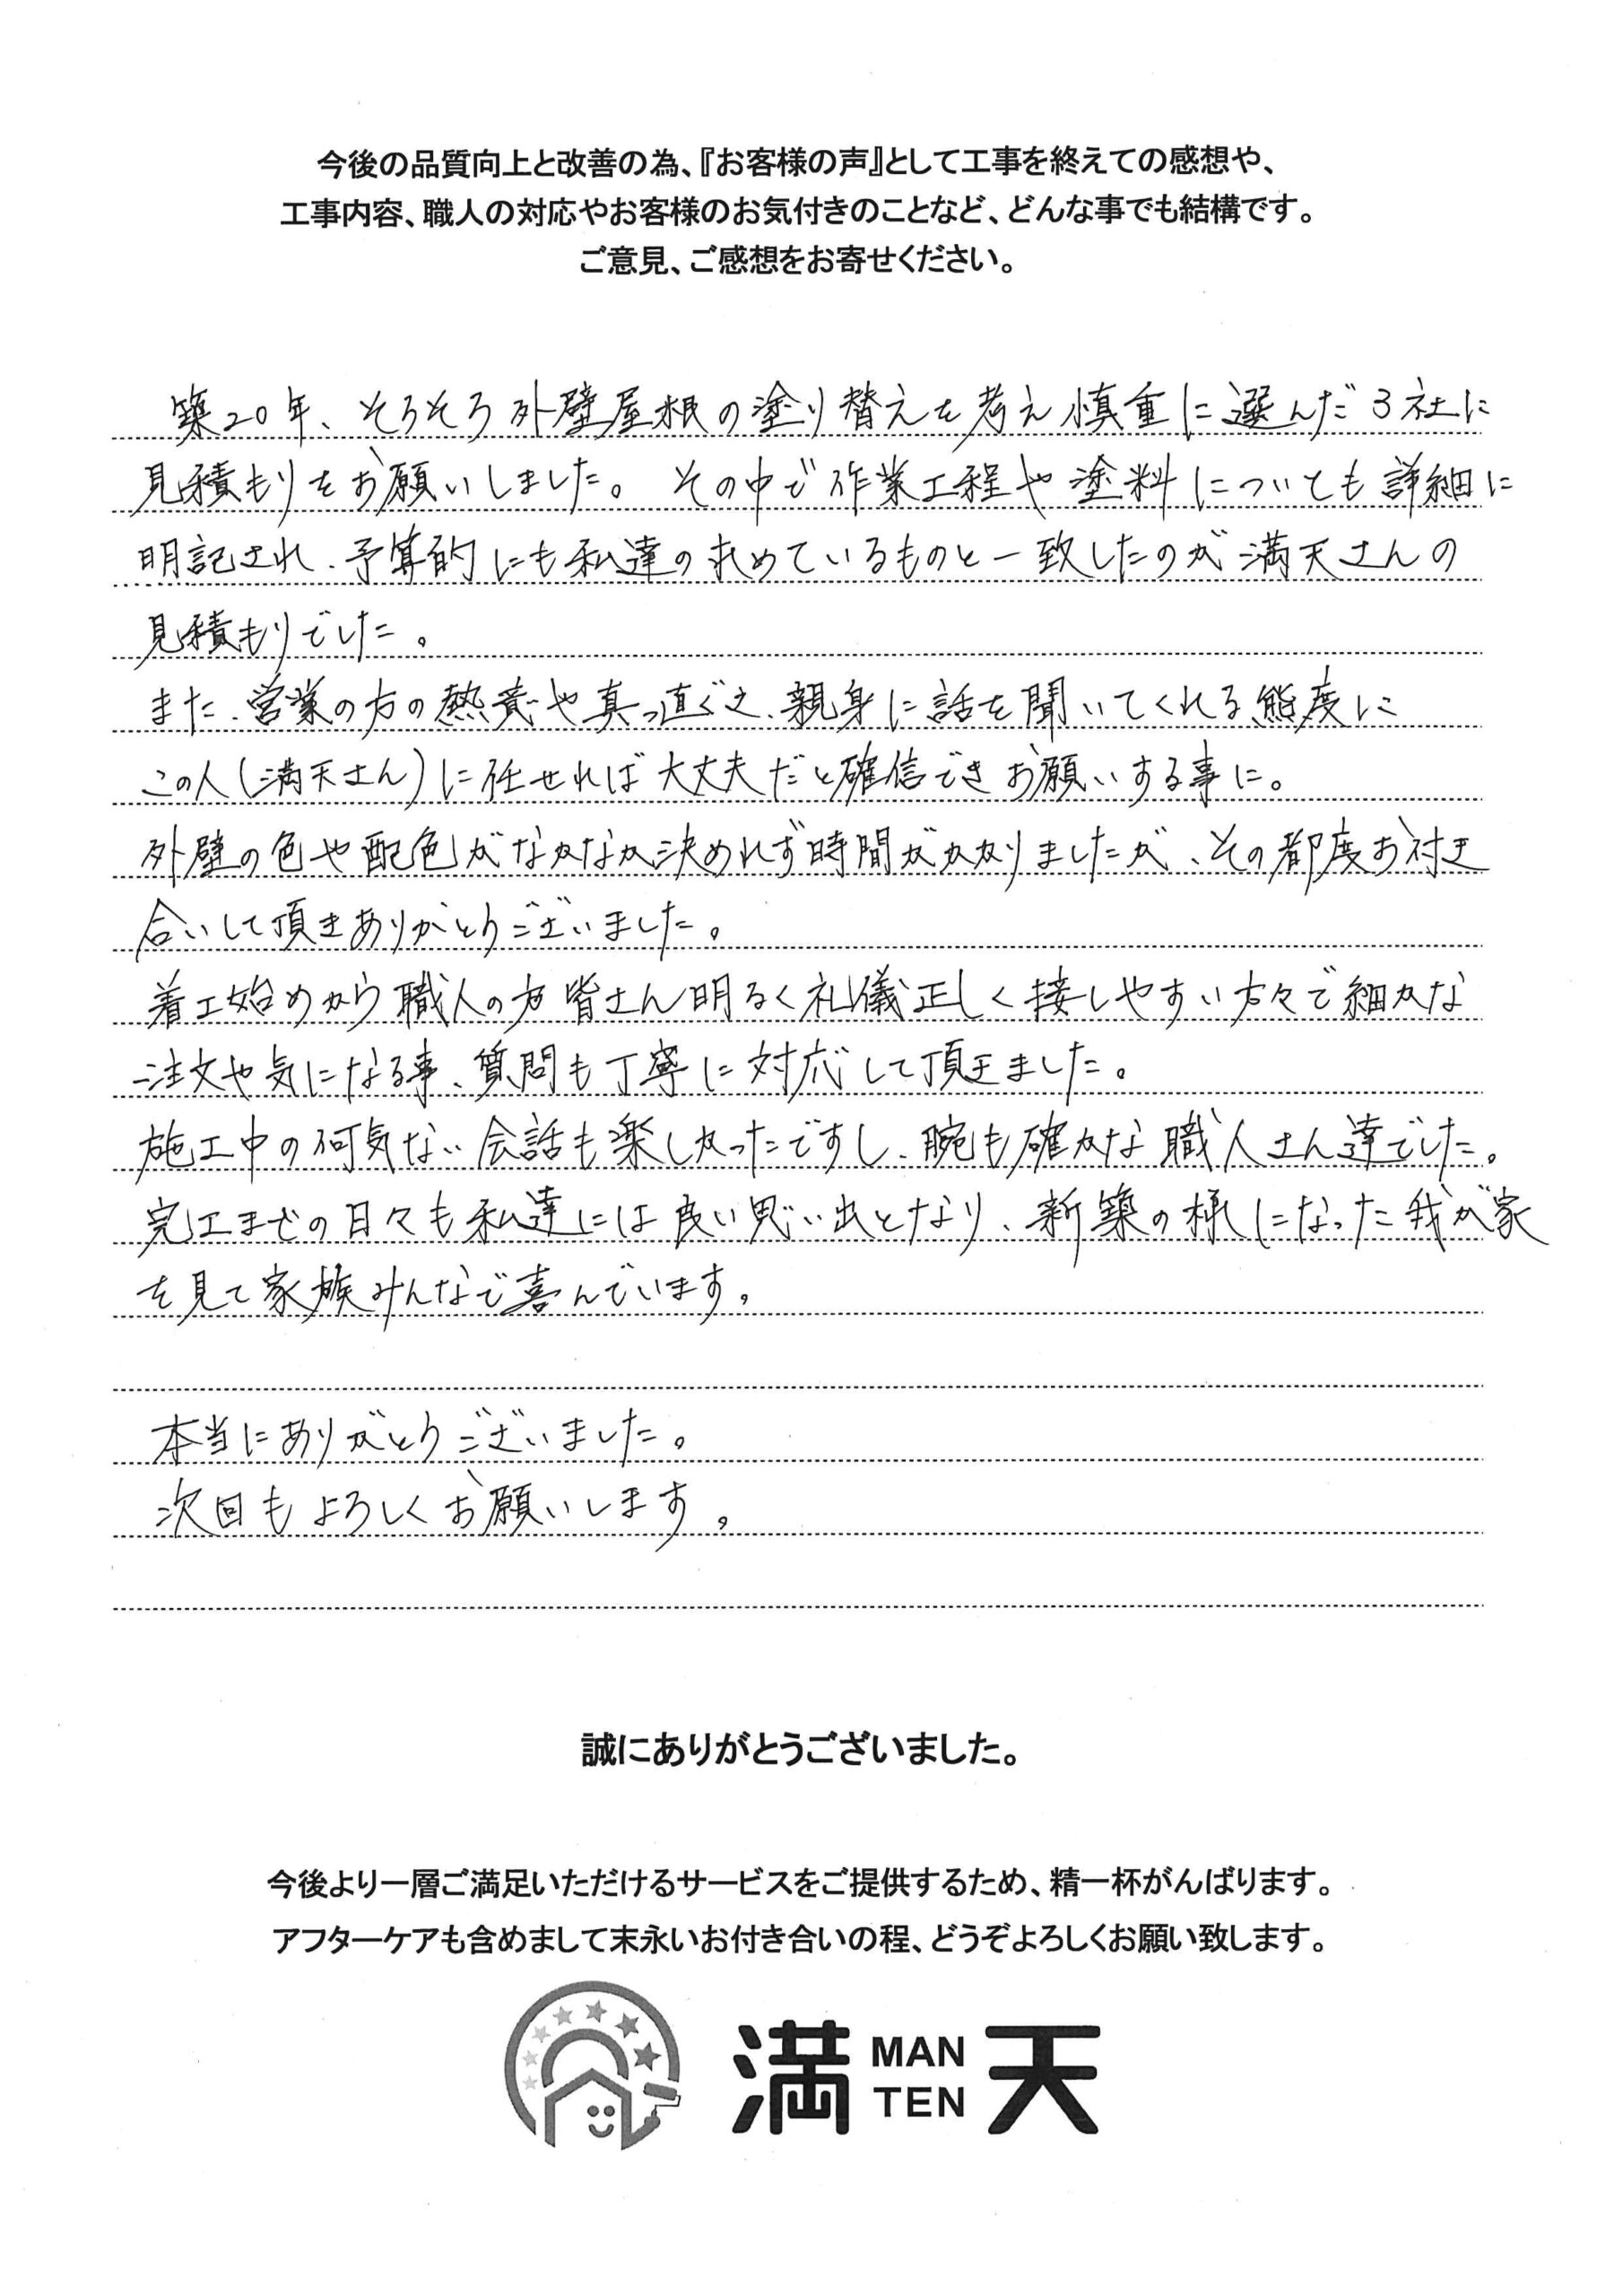 今後の品質向上と改善の為、『お客様の声』として工事を終えての感想や、
工事内容、職人の対応やお客様のお気付きのことなど、どんな事でも結構です。
ご意見、ご感想をお寄せください。
築20年、そろそろ外壁屋根の塗り替えを考え慎重に選んだ3社に
見積もりをお願いしました。その中で作業工程や塗料についても詳細に
明記され、予算的にも私達の求めているものと一致したのが満天さんの
見積もりでした。
また、営業の方の熱意や真っ直ぐさ、親身に話を聞いてくれる態度に
この人(満天さん)に任せれば大丈夫だと確信できお願いする事に。
外壁の色や配色がなかなか決めれず時間がかかりましたが、その都度お付き
合いして頂きありがとうございました。
着工始めから職人の方皆さん明るく礼儀正しく接しやすい方々で細かな
注文や気になる事、質問も丁寧に対応して頂きました。
施工中の何気ない会話も楽しかったですし、腕も確かな職人さん達でした。
完工までの日々も私達には良い思い出となり、新築の様になった我が家
を見て家族みんなで喜んでいます。
本当にありがとうございました。
次回もよろしくお願いします。
誠にありがとうございました。
今後より一層ご満足いただけるサービスをご提供するため、精一杯がんばります。
アフターケアも含めまして末永いお付き合いの程、どうぞよろしくお願い致します。
満 MAN TEN 天